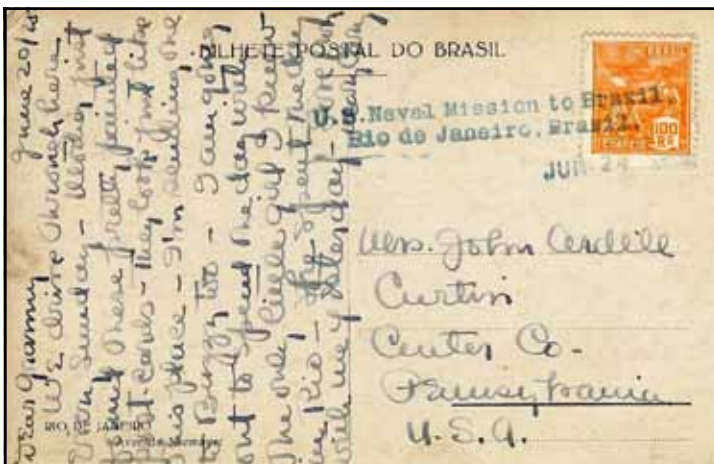 BILHETE POSTAL DO BRASIL
U.S. Naval Mission to Brazil,
Rio de Janeiro, Brazil.
JUN 24
100
RS
Mrs. John
Curtin
Center Co-
Pennsylvania
U.S.A.
June 20/
Dear Granny
We drive through here
every Sunday -
these pretty painted
post-cards - They look just like
this place - I'm sending one
to Buzzy, too - I am going
out to spend the day with
the one little girl I knew
in Rio - She spent the day
with me yesterday -
RIO DE JANEIRO